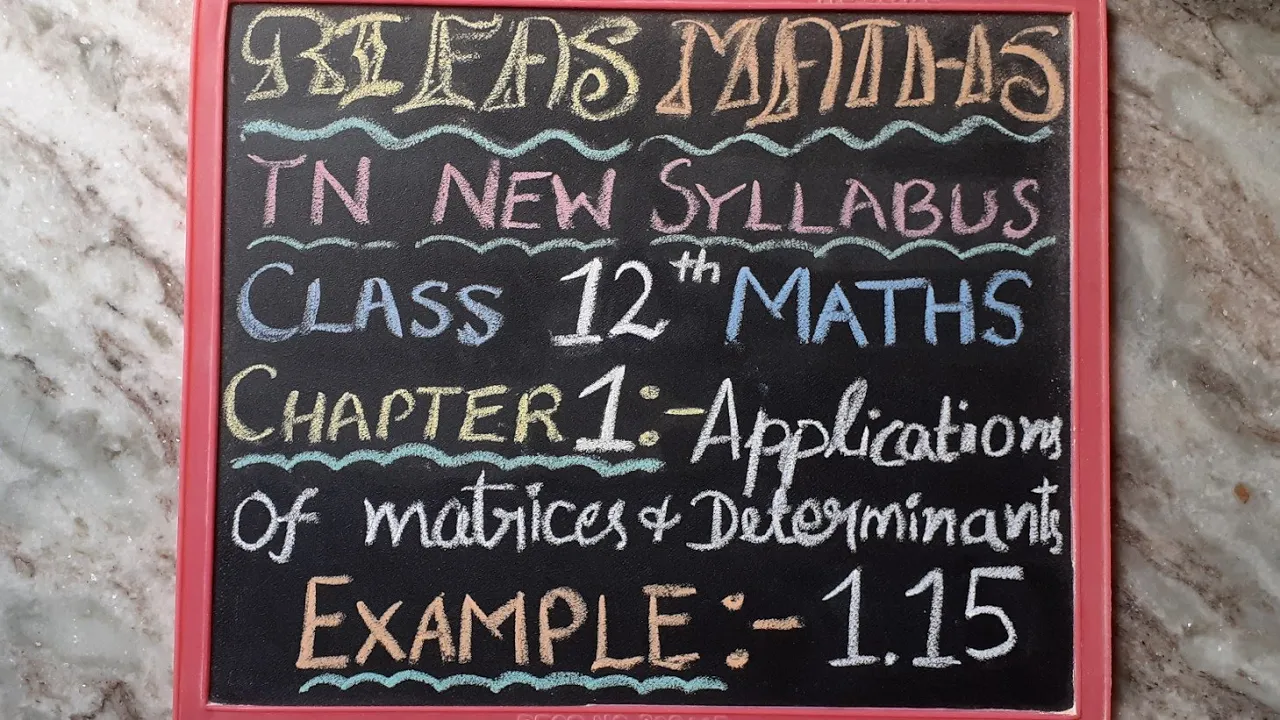 RIFAS MATHS
TN NEW SYLLABUS
CLASS 12th MATHS
CHAPTER 1:- Applications
Of matrices & Determinants
EXAMPLE:- 1.15